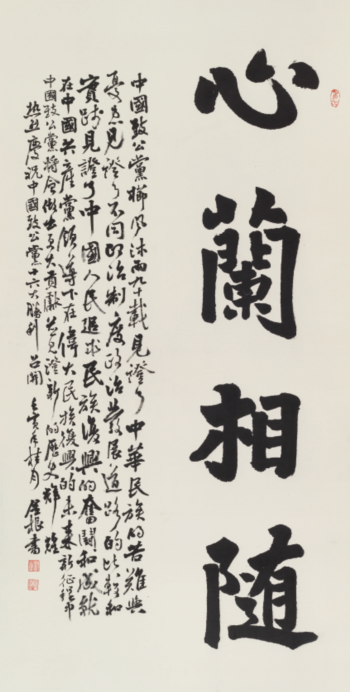 心蘭相随
中國致公黨櫛风沐雨九十載見證了中华民族的苦難與
憂患見證了不同政治制度政治發展道路的比較和
實踐見證了中國人民追求民族復興的奮鬪和成就
在中國共産黨領導下在偉大民族復興的未来新征程中
中國致公黨将会做出更大貢獻共見證新的歷史輝煌
热烈慶祝中國致公黨十六大勝利召開
壬寅年桂月
書